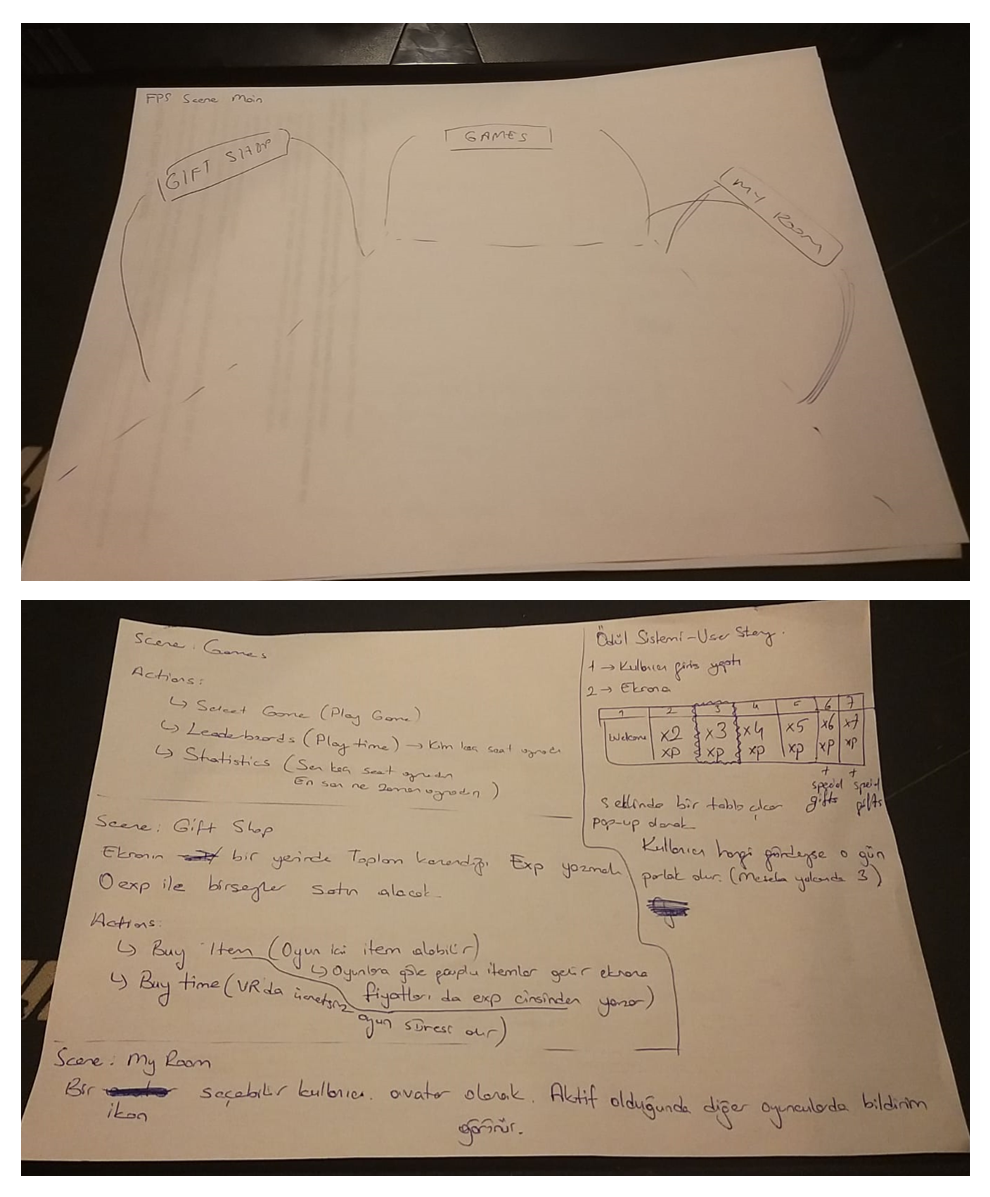 FPS Scene Main
GIFT SHOP
GAMES
MY ROOM
Scene: Games
Actions:
↳ Select Game (Play Game)
↳ Leaderboards (Play time) → Kim kaç saat oynadı
↳ Statistics (Sen kaç saat oynadın
En son ne zaman oynadın)
Scene: Gift Shop
Ekranın bir yerinde Toplam kazandığı Exp yazmalı
O exp ile birşeyler satın alacak.
Actions:
↳ Buy Item (Oyun içi item alabilir)
↳ Oyunlara göre gruplu itemler gelir ekrana
fiyatları da exp cinsinden yazar)
↳ Buy time (VR'da ücretsiz
oyun süresi alır)
Scene: My Room
Bir seçebilir kullanıcı. avatar olarak. Aktif olduğunda diğer oyuncularda bildirim
ikon
görünür.
Ödül Sistemi-User Story.
1 → Kullanıcı giriş yaptı
2 → Ekrana
1 2 3 4 5 6 7
Welcome x2 x3 x4 x5 x6 x7
xp xp xp xp xp xp
+ +
special special
gifts gifts
şeklinde bir tablo çıkar
pop-up olarak
Kullanıcı hangi gündeyse o gün
parlak olur. (Mesela yukarıda 3)